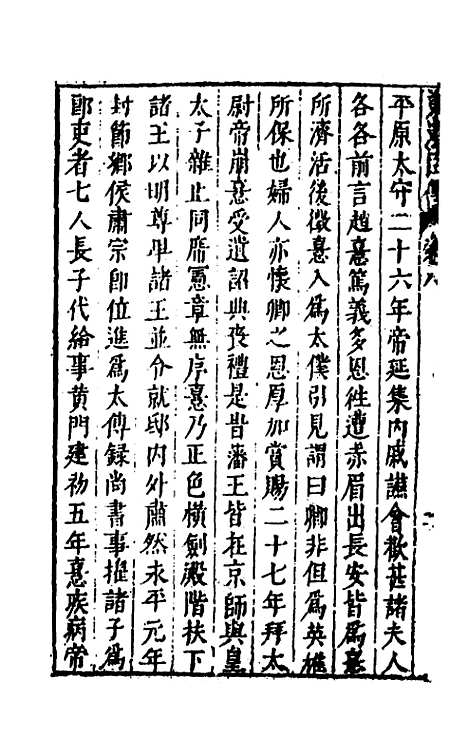 平原太守二十六年帝延集内戚讌會歡甚諸夫人
各各前言趙憙篤義多恩徃遭赤眉出長安皆爲憙
所濟活後徵憙入爲太僕引見謂曰卿非但爲英雄
所保也婦人亦懐卿之恩厚加賞賜二十七年拜太
尉帝崩憙受遺詔典喪禮是旹藩王皆在京師與皇
太子雜止同席憲章無序憙乃正色横劍殿階扶下
諸王以明尊卑諸王並令就邸内外肅然永平元年
封節鄉侯肅宗即位進爲太傅録尚書事擢諸子爲
郎吏者七人長子代給事黄門建初五年憙疾病帝